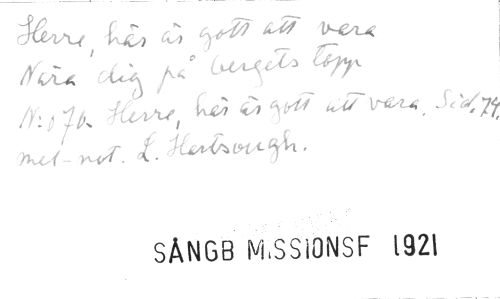 Herre, här är gott att vara
Nära dig på bergets topp
N:o 70. Herre, här är gott att vara. Sid. 74.
mel-not. L. Hartsough.
SÅNGB MISSIONSF 1921